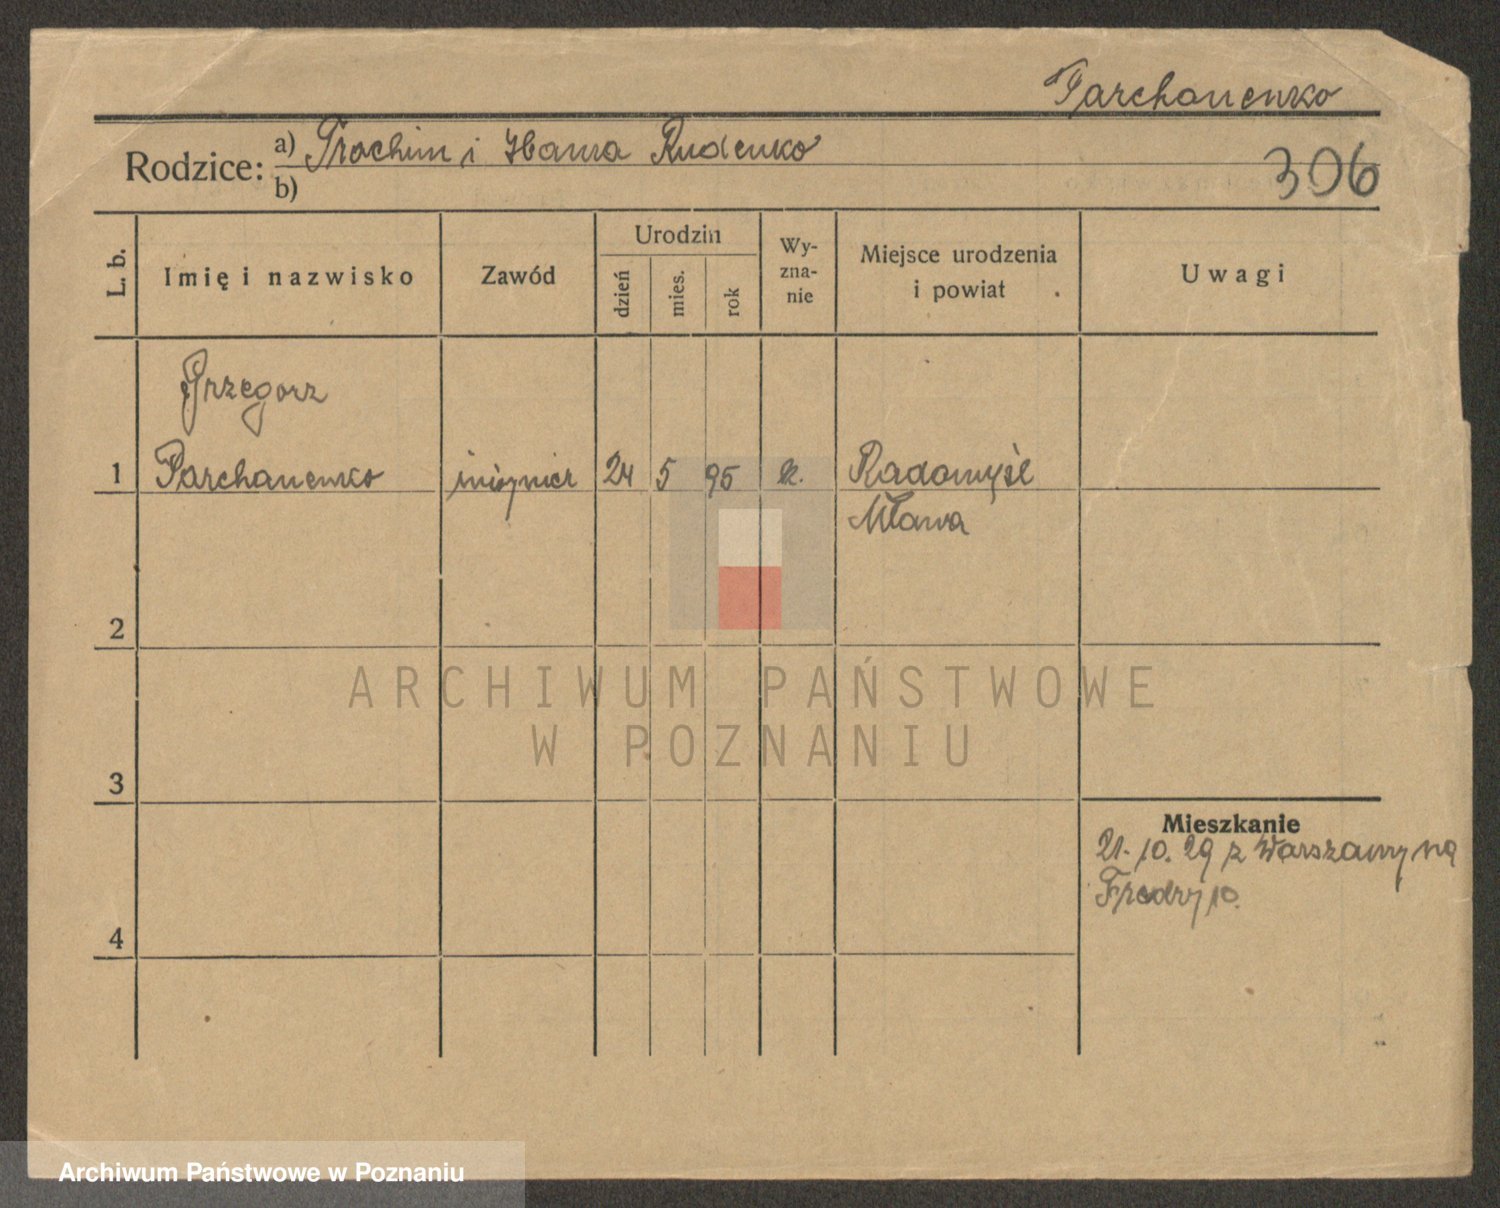 Parchanenko
Rodzice: a) Trochim i Hanna Rudenko
b)
306
L. b.
Imię i nazwisko
Zawód
Urodzin
dzień
mies.
rok
Wy-
zna-
nie
Miejsce urodzenia
i powiat
Uwagi
Grzegorz
1 Parchanenko inżynier 24 5 95 Radomyśl
Mława
2
3
4
Mieszkanie
21. 10. 29 z Warszawy na
Fredry 10.
ARCHIWUM PAŃSTWOWE
W POZNANIU
Archiwum Państwowe w Poznaniu